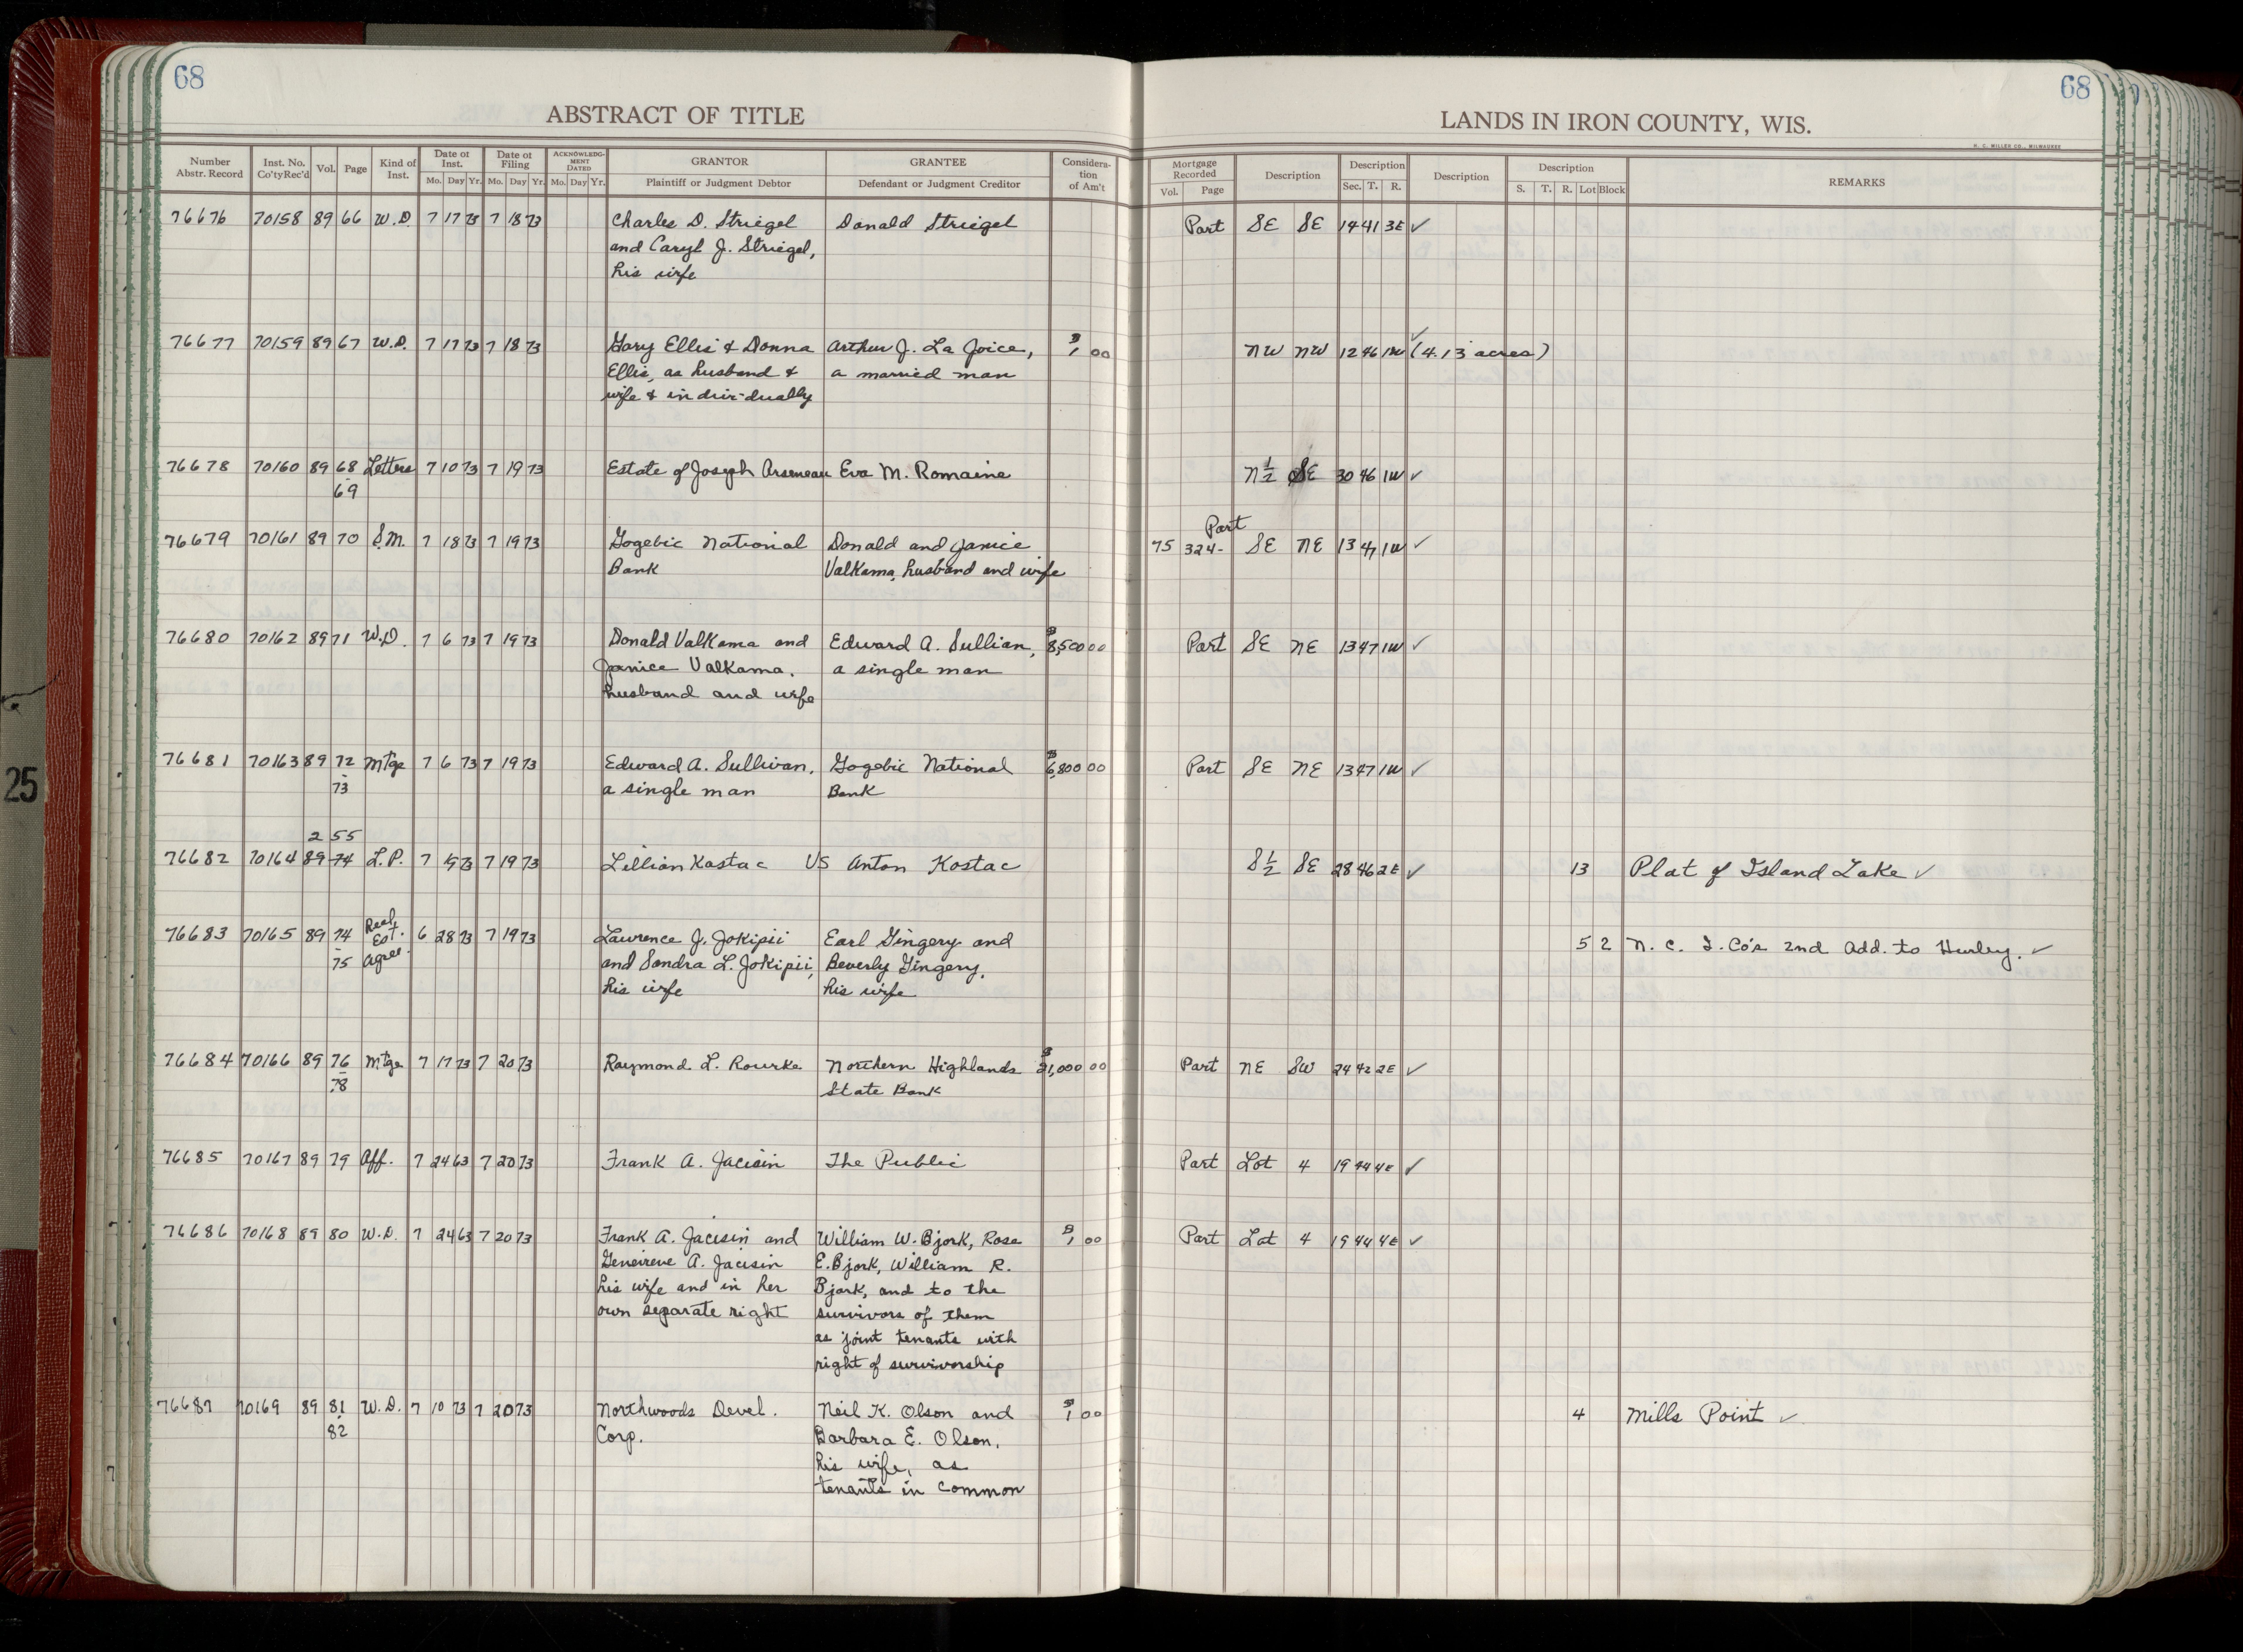 68
68
ABSTRACT OF TITLE
LANDS IN IRON COUNTY, WIS.
H. C. MILLER CO., MILWAUKEE
Number Abstr. Record Inst. No. Co'ty Rec'd Vol. Page Kind of Inst. Date of Inst. Mo. Day Yr. Date of Filing Mo. Day Yr. ACKNOWLEDGMENT DATED Mo. Day Yr. GRANTOR Plaintiff or Judgment Debtor GRANTEE Defendant or Judgment Creditor Consideration of Am't Mortgage Recorded Vol. Page Description Description Sec. T. R. Description Description S. T. R. Lot Block REMARKS
76676 70158 89 66 W.D. 7 17 73 7 18 73 Charles D. Striegel Donald Striegel Part SE SE 14 41 3E ✓
and Caryl J. Striegel,
his wife
76677 70159 89 67 W.D. 7 17 73 7 18 73 Gary Ellis & Donna Arthur J. La Joice, $1 00 NW NW 12 46 1W (4.13 acres) ✓
Ellis, as husband & a married man
wife & individually
76678 70160 89 68 Letters 7 10 73 7 19 73 Estate of Joseph Arseneau Eva M. Romaine N½ SE 30 46 1W ✓
-69
Part
76679 70161 89 70 S.M. 7 18 73 7 19 73 Gogebic National Donald and Janice 75 324- SE NE 13 47 1W ✓
Bank Valkama, husband and wife
76680 70162 89 71 W.D. 7 6 73 7 19 73 Donald Valkama and Edward A. Sullian, $8,500 00 Part SE NE 13 47 1W ✓
Janice Valkama, a single man
husband and wife
76681 70163 89 72 Mtge 7 6 73 7 19 73 Edward A. Sullivan, Gogebic National $6,800 00 Part SE NE 13 47 1W ✓
-73 a single man Bank
2 55
76682 70164 89 74 L.P. 7 73 7 19 73 Lillian Kostac VS Anton Kostac S½ SE 28 46 2E ✓ 13 Plat of Island Lake ✓
76683 70165 89 74 Real Est. Agree. 6 28 73 7 19 73 Lawrence J. Jokipii Earl Gingery and 5 2 N. C. I. Co's 2nd Add. to Hurley. ✓
-75 and Sandra L. Jokipii, Beverly Gingery,
his wife his wife
76684 70166 89 76 Mtge 7 17 73 7 20 73 Raymond L. Rourke Northern Highlands $21,000 00 Part NE SW 24 42 2E ✓
-78 State Bank
76685 70167 89 79 Aff. 7 24 63 7 20 73 Frank A. Jacisin The Public Part Lot 4 19 44 4E ✓
76686 70168 89 80 W.D. 7 24 63 7 20 73 Frank A. Jacisin and William W. Bjork, Rose $1 00 Part Lot 4 19 44 4E ✓
Genevieve A. Jacisin E. Bjork, William R.
his wife and in her Bjork, and to the
own separate right survivors of them
as joint tenants with
right of survivorship
76687 70169 89 81 W.D. 7 10 73 7 20 73 Northwoods Devel. Neil K. Olson and $1 00 4 Mills Point ✓
-82 Corp. Barbara E. Olson,
his wife, as
tenants in common
25